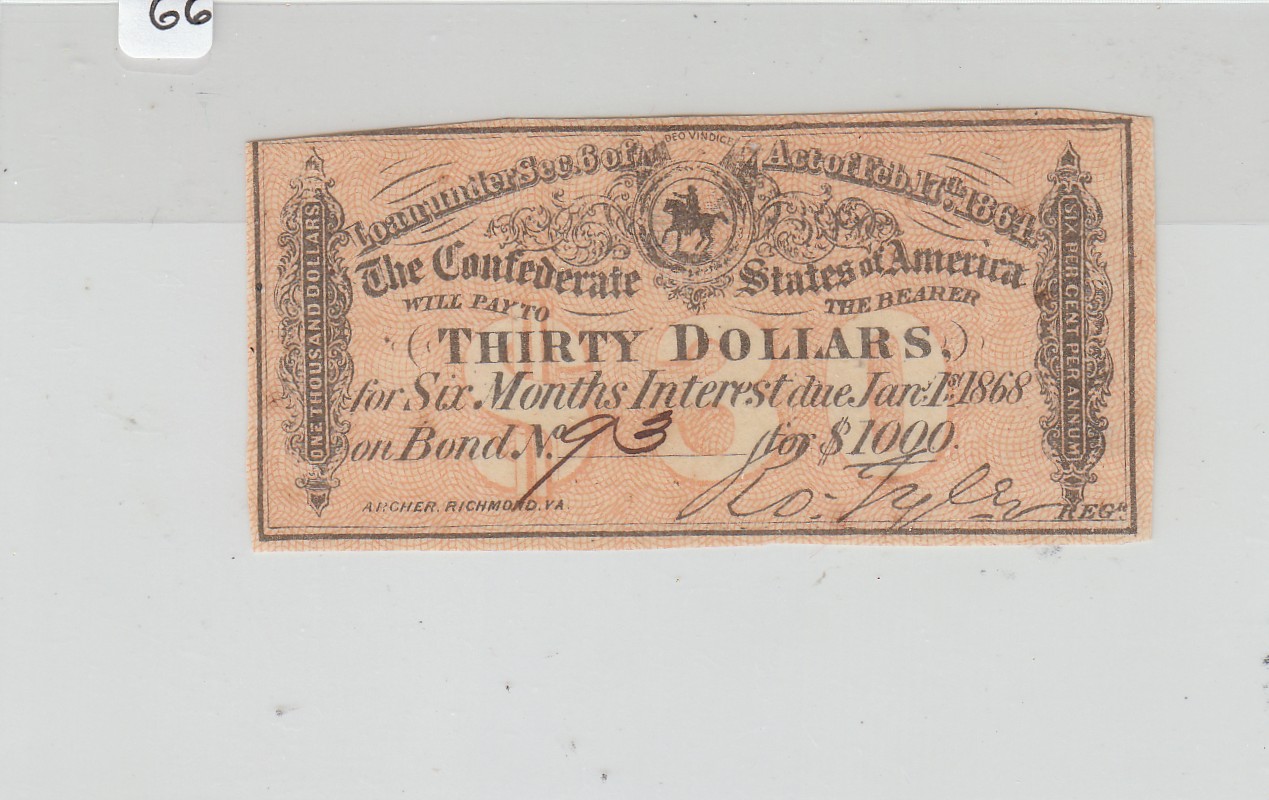 66
DEO VINDICE
Loan under Sec. 6 of Act of Feb. 17th. 1864.
The Confederate States of America
WILL PAY TO THE BEARER
$30
THIRTY DOLLARS,
for Six Months Interest due Jany. 1st. 1868
on Bond No. 93 for $1000.
Ro. Tyler
ARCHER, RICHMOND, VA. REGR.
ONE THOUSAND DOLLARS
SIX PER CENT PER ANNUM